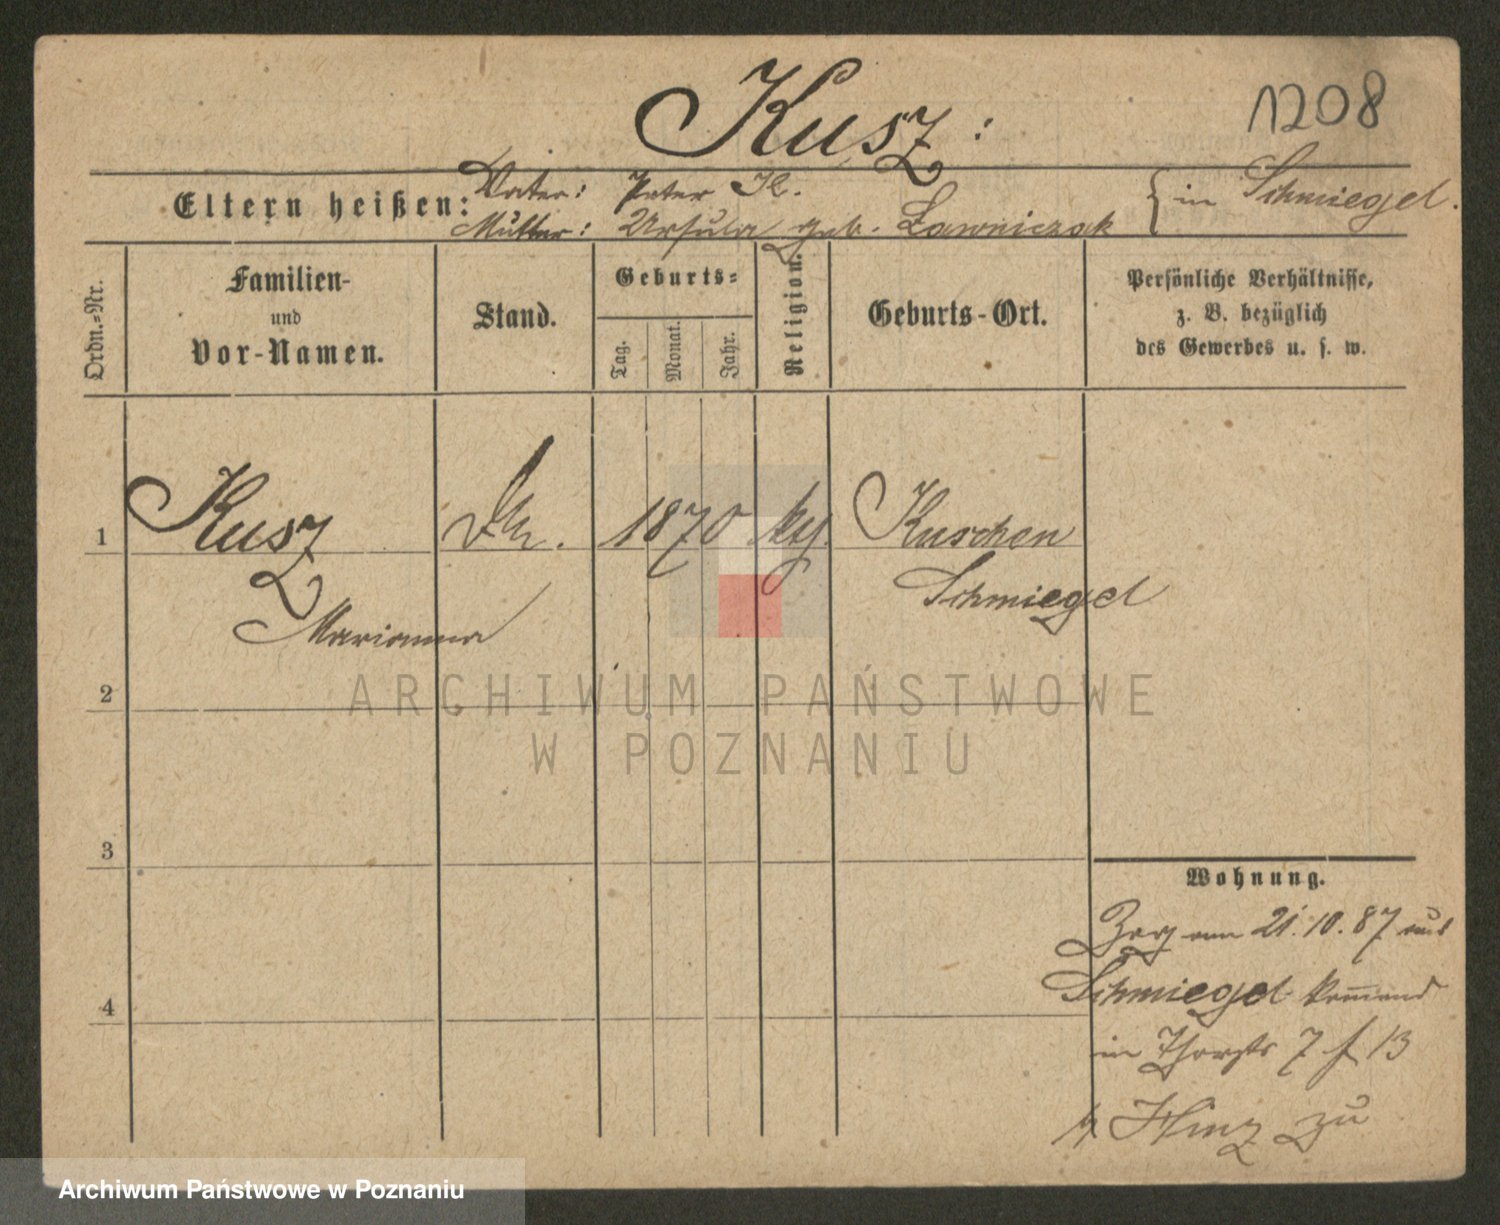 Kusz:
1208
Eltern heißen:
Vater: Peter K.
Mutter: Ursula geb. Ławniczak
in Schmiegel.
Ordn.-Nr.
Familien-
und
Vor-Namen.
Stand.
Geburts-
Tag.
Monat.
Jahr.
Religion.
Geburts-Ort.
Persönliche Verhältnisse,
z. B. bezüglich
des Gewerbes u. s. w.
1
Kusz
1870
Kuschen
Schmiegel
Marianna
2
ARCHIWUM PAŃSTWOWE
W POZNANIU
3
Wohnung.
21.10.87 aus
Schmiegel
4
in 7 13
Hinz zu
Archiwum Państwowe w Poznaniu